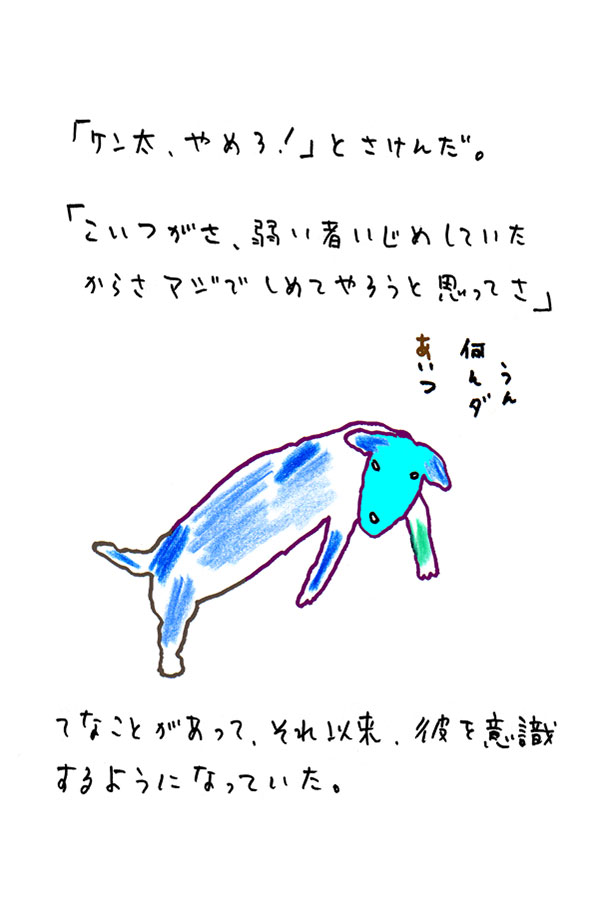 「ケン太、やめろ！」とさけんだ。
「こいつがさ、弱い者いじめしていた
からさマジでしめてやろうと思ってさ」
うん
何んダ
あいつ
てなことがあって、それ以来、彼を意識
するようになっていた。